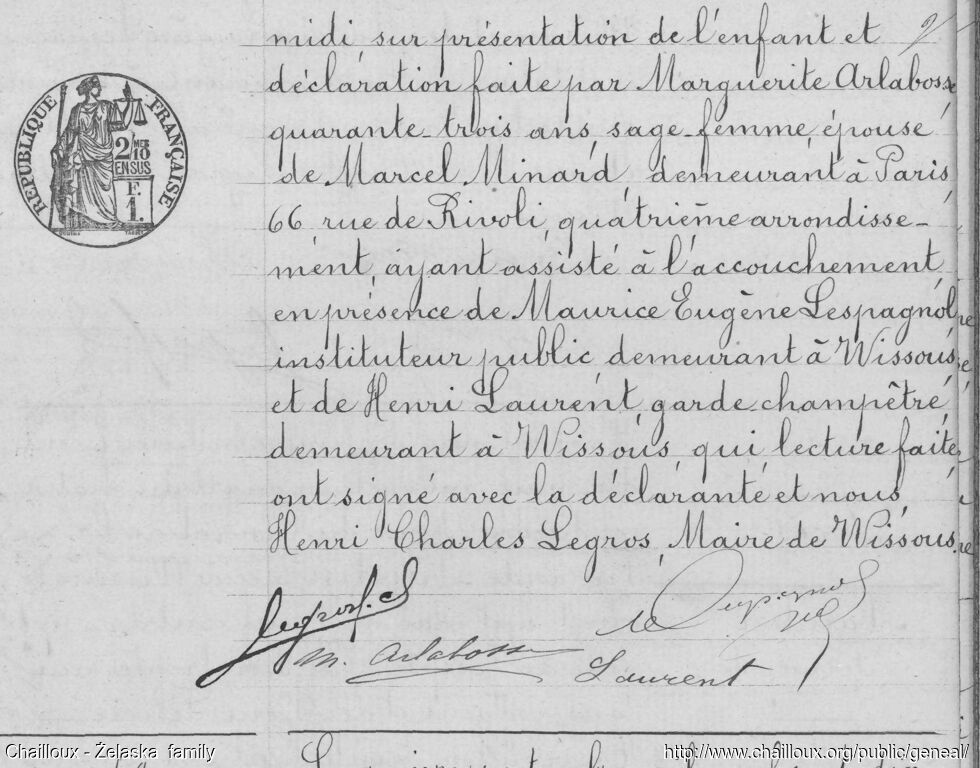 midi sur présentation de l'enfant et
déclaration faite par Marguerite Arlabosse
quarante-trois ans sage-femme, épouse
de Marcel Minard, demeurant à Paris,
66 rue de Rivoli, quatrième arrondisse-
ment, ayant assisté à l'accouchement,
en présence de Maurice Eugène Lespagnol,
instituteur public demeurant à Wissous,
et de Henri Laurent, garde-champêtre,
demeurant à Wissous, qui lecture faite,
ont signé avec la déclarante et nous,
Henri Charles Legros, Maire de Wissous.
RÉPUBLIQUE FRANÇAISE
2 MES
10
EN SUS
F.
1.
M. Arlabosse
Laurent
Chailloux - Żelaska family
http://www.chailloux.org/public/geneal/